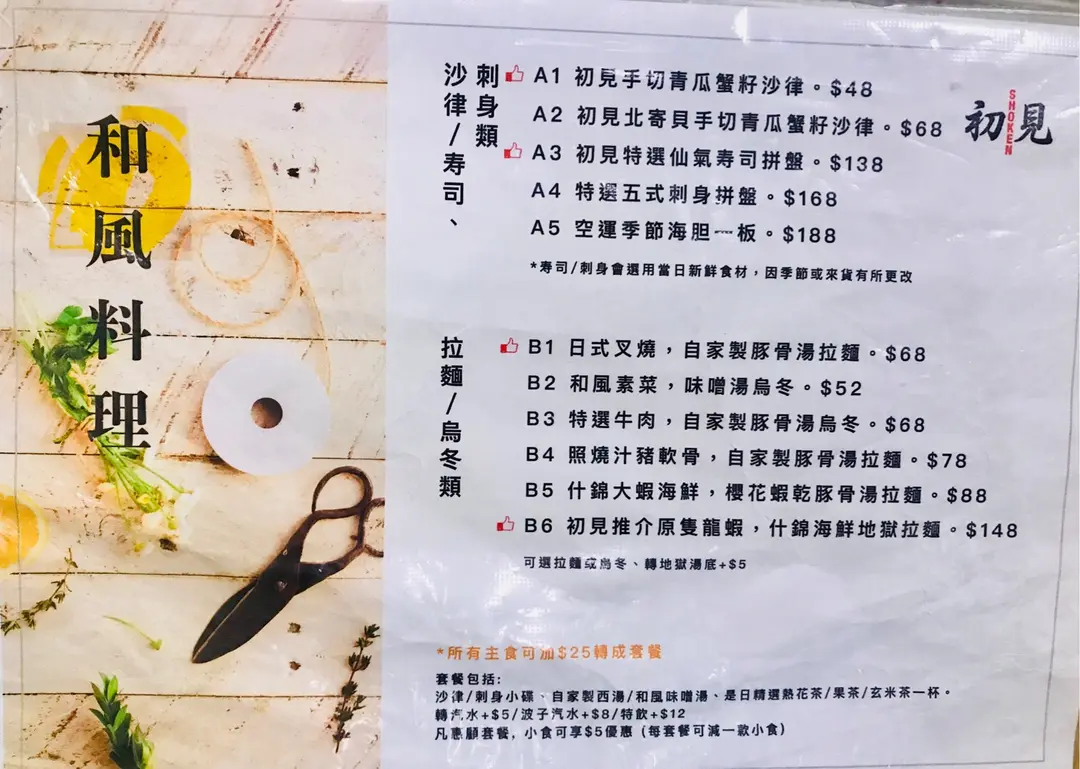 和風料理
初見
SHOKEN
沙律/寿司、
刺身類
A1 初見手切青瓜蟹籽沙律。$48
A2 初見北寄貝手切青瓜蟹籽沙律。$68
A3 初見特選仙氣寿司拼盤。$138
A4 特選五式刺身拼盤。$168
A5 空運季節海胆一板。$188
*寿司/刺身會選用當日新鮮食材，因季節或來貨有所更改
拉麵/烏冬類
B1 日式叉燒，自家製豚骨湯拉麵。$68
B2 和風素菜，味噌湯烏冬。$52
B3 特選牛肉，自家製豚骨湯烏冬。$68
B4 照燒汁豬軟骨，自家製豚骨湯拉麵。$78
B5 什錦大蝦海鮮，櫻花蝦乾豚骨湯拉麵。$88
B6 初見推介原隻龍蝦，什錦海鮮地獄拉麵。$148
可選拉麵或烏冬、轉地獄湯底+$5
*所有主食可加$25轉成套餐
套餐包括:
沙律/刺身小碟、自家製西湯/和風味噌湯、是日精選熱花茶/果茶/玄米茶一杯。
轉汽水+$5/波子汽水+$8/特飲+$12
凡惠顧套餐，小食可享$5優惠（每套餐可減一款小食）